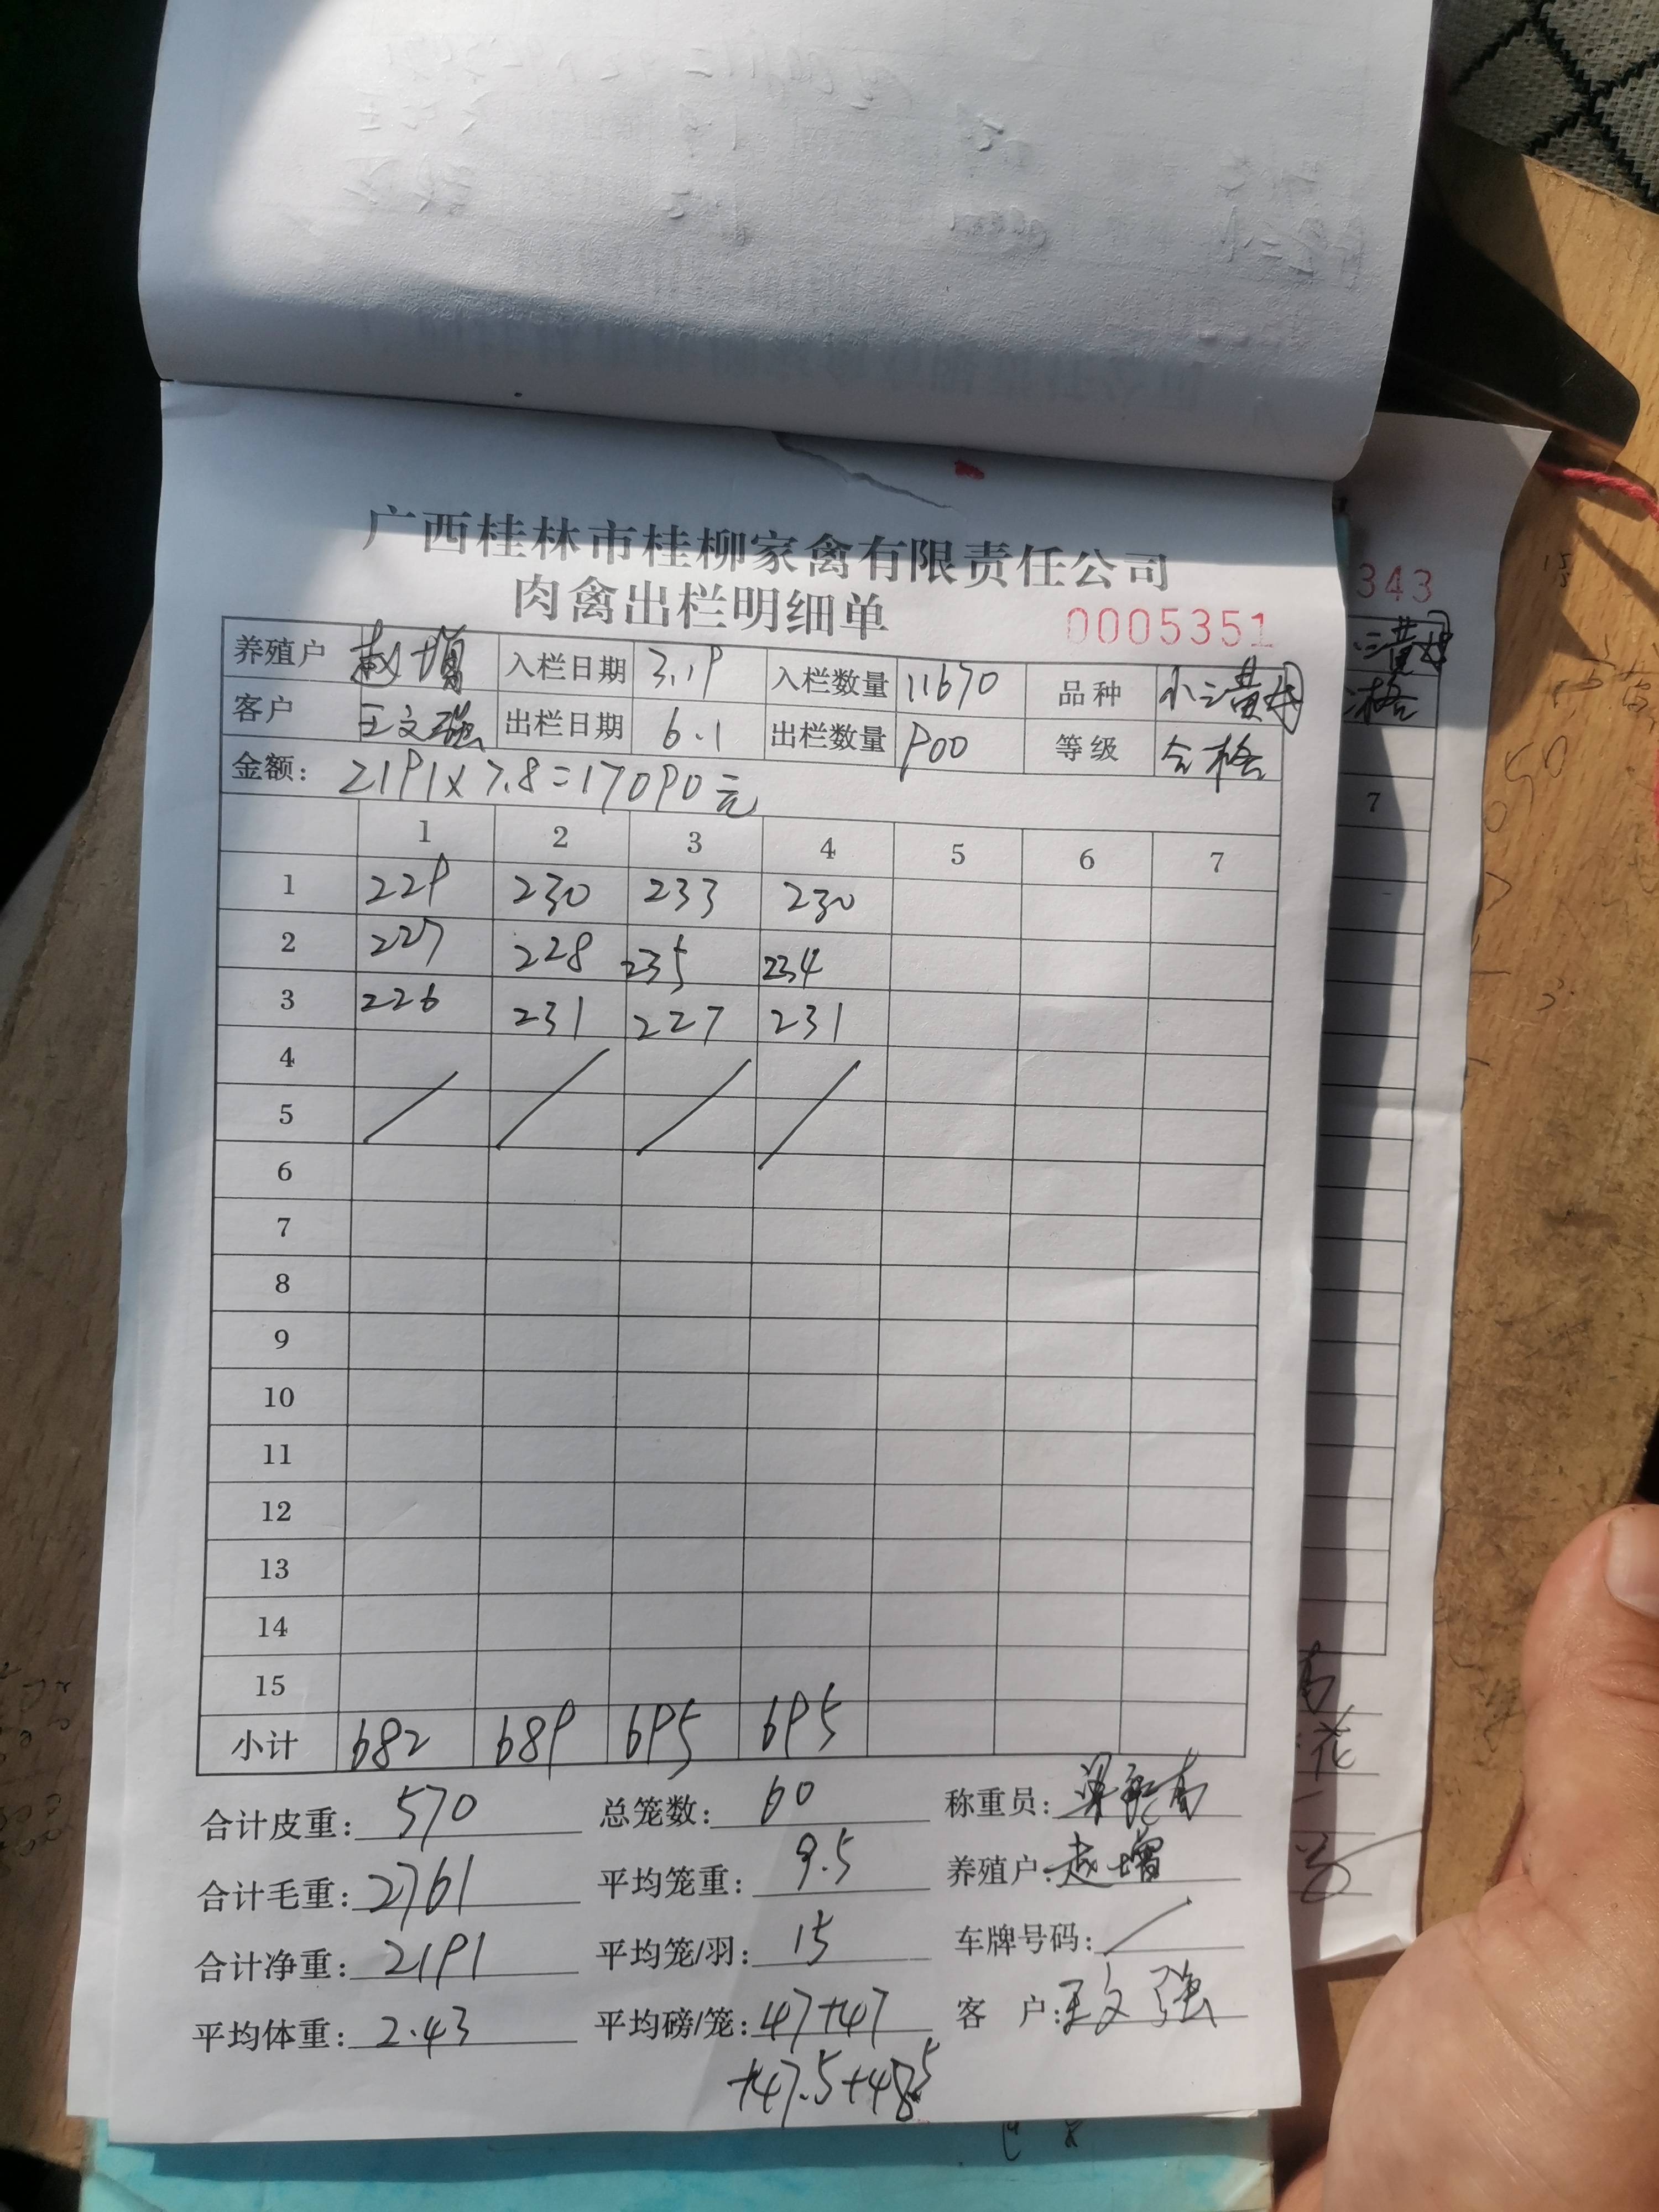 广西桂林市桂柳家禽有限责任公司
肉禽出栏明细单 0005351
养殖户 赵增 入栏日期 3.19 入栏数量 11670 品种 小三黄母
客户 王文强 出栏日期 6.1 出栏数量 900 等级 合格
金额: 2191x7.8=17090元
1 2 3 4 5 6 7
1 229 230 233 230
2 227 228 235 234
3 226 231 227 231
4
5
6
7
8
9
10
11
12
13
14
15
小计 682 689 695 695
合计皮重: 570 总笼数: 60 称重员:
合计毛重: 2761 平均笼重: 9.5 养殖户: 赵增
合计净重: 2191 平均笼/羽: 15 车牌号码: /
平均体重: 2.43 平均磅/笼: 47+47 客 户: 王文强
+47.5+48.5
343
黄母
格
7
花